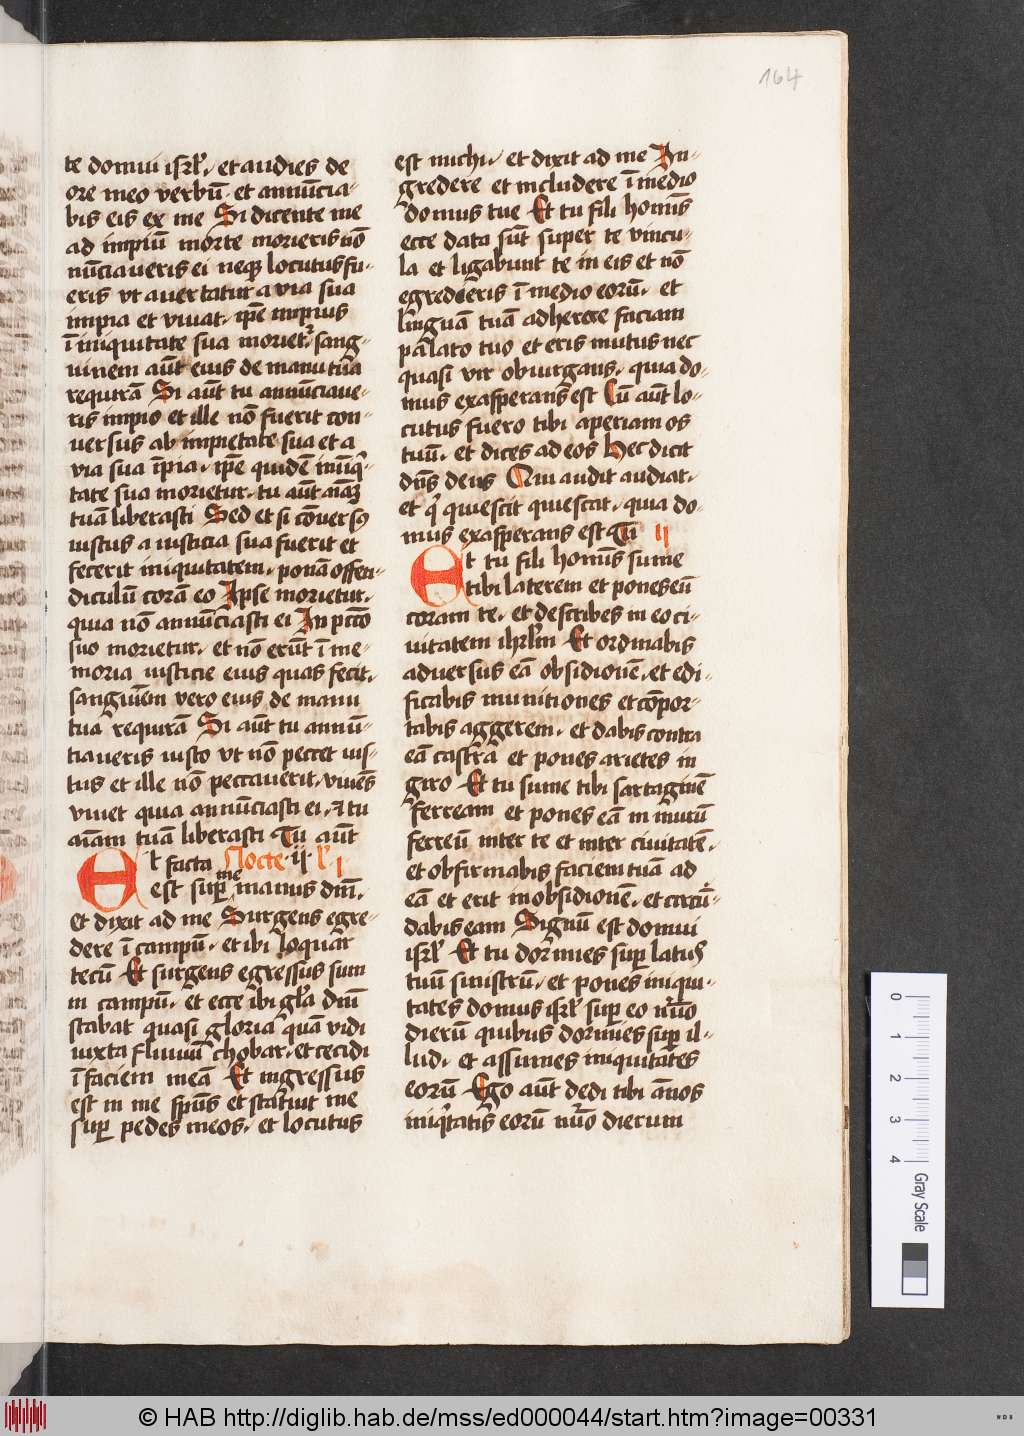 164
te domui isrl̓. et audies de
ore meo verbū. et annūcia-
bis eis ex me Si dicente me
ad impiū morte morieris nō
nūciaveris ei neqꝫ locutus fu-
eris vt avertatur a via sua
impia et vivat. ip̄e impius
ī iniquitate sua moriet᷑. sang-
uinem aūt eius de manu tua
requirā Si aūt tu annūciave-
ris impio et ille nō fuerit con-
versus ab impietate sua et a
via sua īpia. ip̄e quidē iniqͥ-
tate sua morietur. tu aūt aīaꝫ
tuā liberasti Sed et si cōversꝰ
iustus a iusticia sua fuerit et
fecerit iniquitatem. ponā offen-
diculū corā eo Ipse morietur.
quia nō annūciasti ei In pctō
suo morietur. et nō erūt ī me-
moria iusticie eius quas fecit.
sanguīem vero eius de manu
tua requirā Si aūt tu annū-
tiaveris iusto vt nō peccet ius-
tus et ille nō peccaverit. vivēs
vivet quia annūciasti ei. ⁊ tu
aīam tuā liberasti Tu aūt
Et facta Nocte ij l̓ j
est suꝑ me manus dnī.
et dixit ad me Surgens egre-
dere ī campū. et ibi loquar
tecū Et surgens egressus sum
in campū. et ecce ibi glīa dnī
stabat quasi gloria quā vidi
iuxta fluuiū chobar. et cecidi
ī faciem meā Et ingressus
est in me spūs et statuit me
suꝑ pedes meos. et locutus
est michi. et dixit ad me In-
gredere et includere ī medio
domus tue Et tu fili homīs
ecce data sūt super te vincu-
la et ligabunt te in eis et nō
egredieris ī medio eorū. et
linguā tuā adherere faciam
palato tuo et eris mutus nec
quasi vir obiurgans. quia do-
mus exasperans est Cū aūt lo-
cutus fuero tibi aperiam os
tuū. et dices ad eos Hec dicit
dn̄s deus Qui audit audiat.
et qͥ quiescit quiescat. quia do-
mus exasperans est Tu ij
Et tu fili homīs sume
tibi laterem et pones eū
coram te. et describes in eo ci-
uitatem ihrl̓m Et ordinabis
adversus eā obsidionē. et edi-
ficabis munitiones et cōpor-
tabis aggerem. et dabis contra
eā castra et pones arietes in
giro Et tu sume tibi sartaginē
ferream et pones eā in murū
ferreū inter te et inter civitatē.
et obfirmabis faciem tuā ad
eā et erit in obsidionē. et circū-
dabis eam Signū est domui
isrl̓ Et tu dormies suꝑ latus
tuū sinistrū. et pones iniqui-
tates domus isrl̓ suꝑ eo nūo
dierū quibus dormies suꝑ il-
lud. et assumes iniquitates
eorū Ego aūt dedi tibi ānos
iniqͥtatis eorū nūo dierum
0 1 2 3 4 Gray Scale
© HAB http://diglib.hab.de/mss/ed000044/start.htm?image=00331